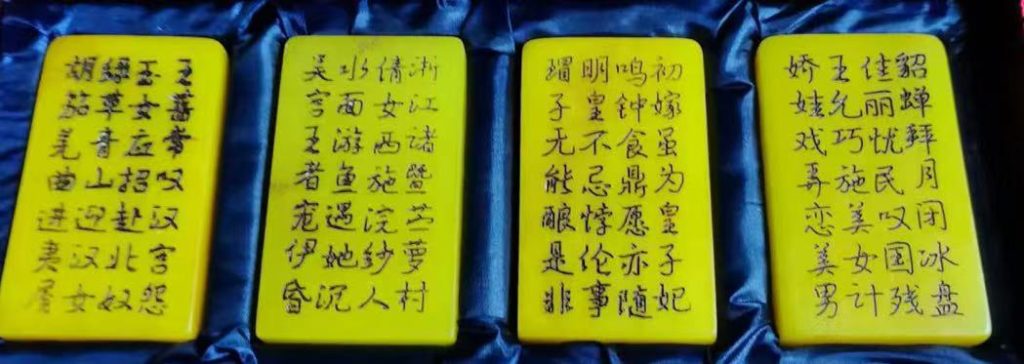 貂蝉拜月闭冰盘
佳丽忧民叹国残
王允巧施美女计
娇娃戏弄恋美男
初嫁虽为皇子妃
鸣钟食鼎愿亦随
明皇不忌悖伦事
瑁子无能酿是非
浙江诸暨苎萝村
倩女西施浣纱人
水面游鱼遇她沉
吴宫王者宠伊昏
王蔷常叹汉宫怨
玉女应招赴北奴
绿草青山迎汉女
胡笳羌曲进夷